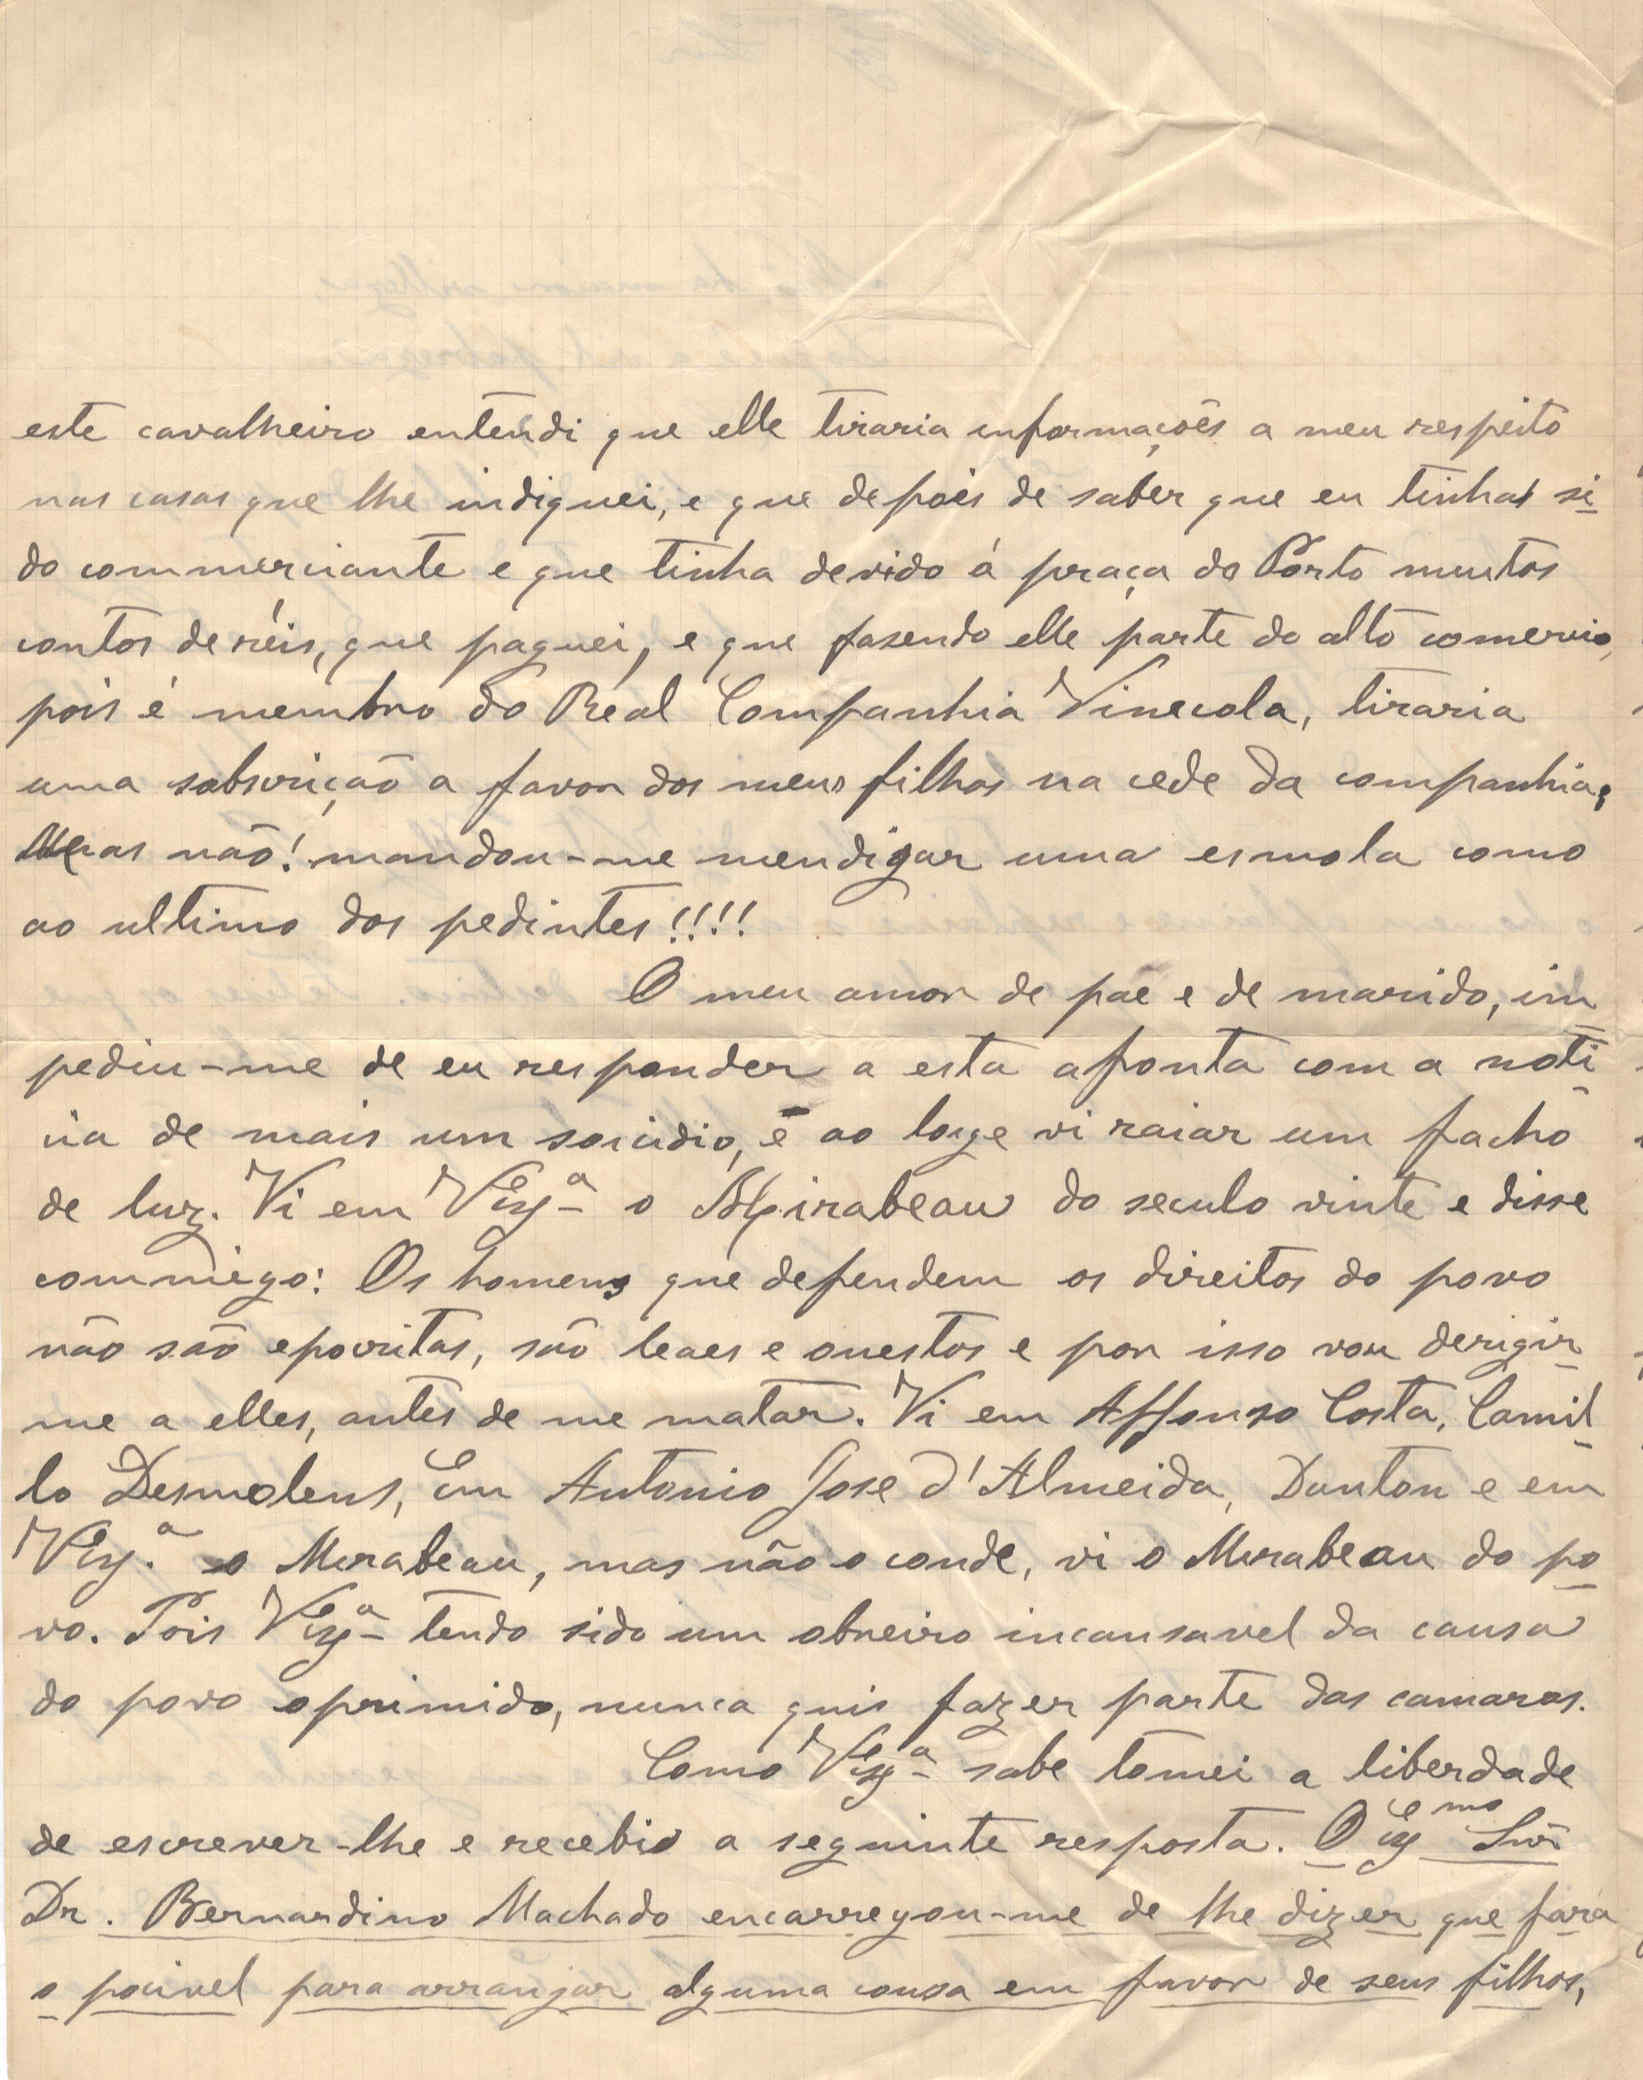 este cavalheiro entendi que elle tiraria informações a meu respeito
nas casas que lhe indiquei, e que depois de saber que eu tinha si
do commerciante e que tinha devido á praça do Porto muitos
contos de réis, que paguei, e que fasendo elle parte do alto comercio,
pois é membro do Real Companhia Vinecola, tiraria
uma sobscrição a favor dos meus filhos na cede da companhia;
Mas não! mandou-me mendigar uma esmola como
ao ultimo dos pedintes!!!!
O meu amor de pae e de marido, im
pediu-me de eu responder a esta afronta com a noti
cia de mais um soicidio, e ao longe vi raiar um facho
de luz. Vi em V Exª o Mirabeau do seculo vinte e disse
commigo: Os homens que defendem os direitos do povo
não são epocritas, são leaes e onestos e por isso vou derigir
me a elles, antes de me matar. Vi em Affonso Costa, Camil
lo Desmolens, em Antonio Jose d'Almeida, Danton e em
V Ex.ª o Mirabeau, mas não o conde, vi o Mirabeau do po
vo. Pois V Exª tendo sido um obreiro incansavel da causa
do povo oprimido, nunca quis fazer parte das camaras.
Como V Exª sabe tomei a liberdade
de escrever-lhe e recebi a seguinte resposta. O Exmo Snr
Dr. Bernardino Machado encarregou-me de lhe dizer que fará
o pocivel para arranjar alguma cousa em favor de seus filhos,